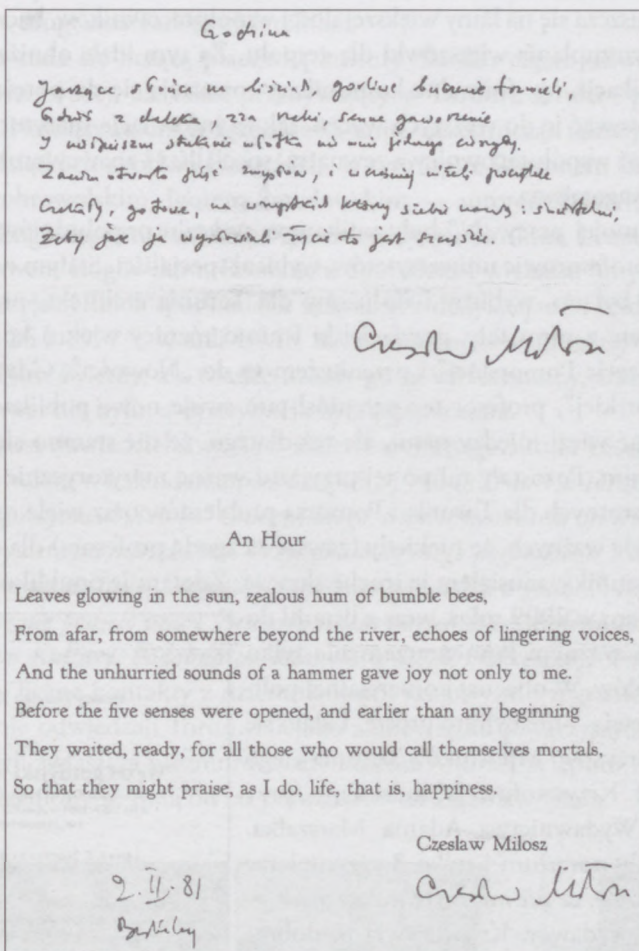 Godzina
Jarzące słońcem liście, gorliwe buczenie trzmieli,
Gdzieś z daleka, zza rzeki, senne gaworzenie
I nieśpieszne stukanie młotka nie mnie jednego cieszyły.
Zanim otwarto pięć zmysłów, i wcześniej niżeli początek
Czekały, gotowe, na wszystkich którzy siebie nazwą: śmiertelni,
Żeby jak ja wysławiali życie to jest szczęście.
Czesław Miłosz
An Hour
Leaves glowing in the sun, zealous hum of bumble bees,
From afar, from somewhere beyond the river, echoes of lingering voices,
And the unhurried sounds of a hammer gave joy not only to me.
Before the five senses were opened, and earlier than any beginning
They waited, ready, for all those who would call themselves mortals,
So that they might praise, as I do, life, that is, happiness.
Czesław Miłosz
9 II. 81
Berkeley
Czesław Miłosz